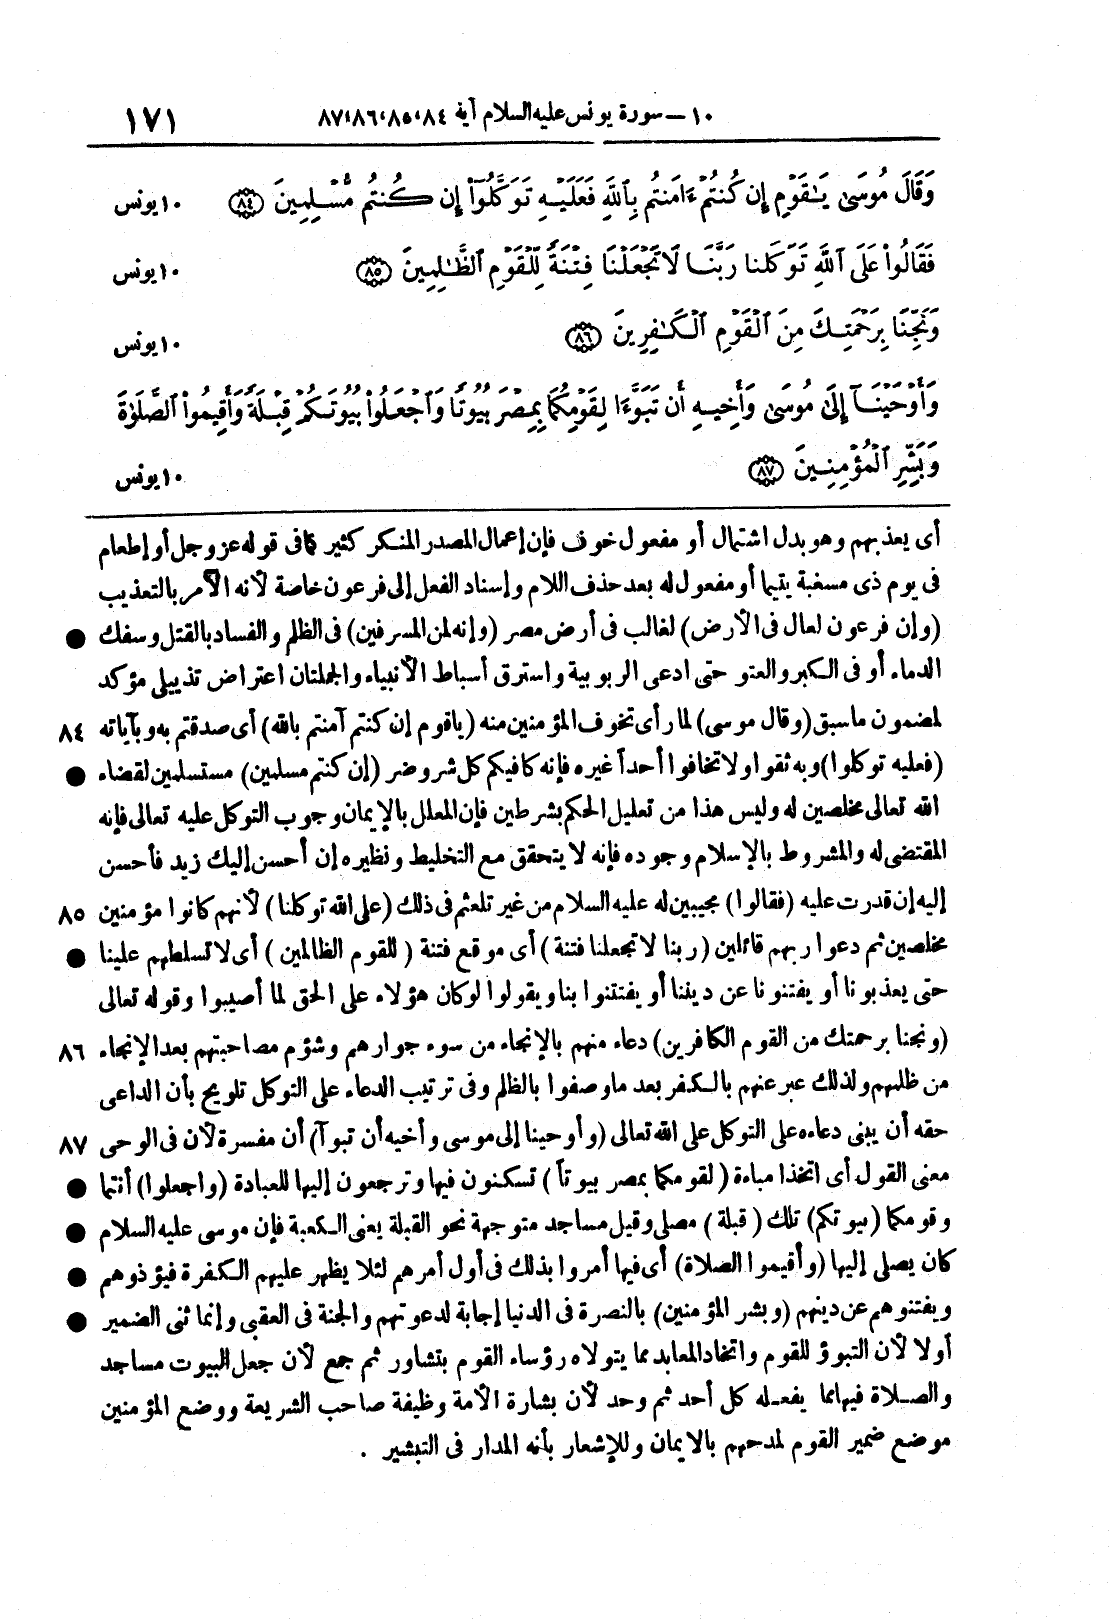 ١٠ – سورة يونس عليه السلام آية ٨٤، ٨٥، ٨٦، ٨٧ ١٧١
وَقَالَ مُوسَىٰ يَـٰقَوْمِ إِن كُنتُمْ ءَامَنتُم بِٱللَّهِ فَعَلَيْهِ تَوَكَّلُوٓا۟ إِن كُنتُم مُّسْلِمِينَ ﴿٨٤﴾ ١٠ يونس
فَقَالُوا۟ عَلَى ٱللَّهِ تَوَكَّلْنَا رَبَّنَا لَا تَجْعَلْنَا فِتْنَةً لِّلْقَوْمِ ٱلظَّـٰلِمِينَ ﴿٨٥﴾ ١٠ يونس
وَنَجِّنَا بِرَحْمَتِكَ مِنَ ٱلْقَوْمِ ٱلْكَـٰفِرِينَ ﴿٨٦﴾ ١٠ يونس
وَأَوْحَيْنَآ إِلَىٰ مُوسَىٰ وَأَخِيهِ أَن تَبَوَّءَا لِقَوْمِكُمَا بِمِصْرَ بُيُوتًا وَٱجْعَلُوا۟ بُيُوتَكُمْ قِبْلَةً وَأَقِيمُوا۟ ٱلصَّلَوٰةَ
وَبَشِّرِ ٱلْمُؤْمِنِينَ ﴿٨٧﴾ ١٠ يونس
أى يعذبهم وهو بدل اشتمال أو مفعول خوف فإن إعمال المصدر المنكر كثير كما فى قوله عز وجل أو إطعام
فى يوم ذى مسغبة يتيما أو مفعول له بعد حذف اللام وإسناد الفعل إلى فرعون خاصة لأنه الآمر بالتعذيب
(وإن فرعون لعال فى الأرض) لغالب فى أرض مصر (وإنه لمن المسرفين) فى الظلم والفساد بالقتل وسفك ●
الدماء أو فى الكبر والعتو حتى ادعى الربوبية واسترق أسباط الأنبياء والجملتان اعتراض تذييلى مؤكد
لمضمون ما سبق (وقال موسى) لما رأى تخوف المؤمنين منه (ياقوم إن كنتم آمنتم بالله) أى صدقتم به وبآياته ٨٤
(فعليه توكلوا) وبه ثقوا ولا تخافوا أحداً غيره فإنه كافيكم كل شر وضر (إن كنتم مسلمين) مستسلمين لقضاء ●
الله تعالى مخلصين له وليس هذا من تعليل الحكم بشرطين فإن المعلل بالإيمان وجوب التوكل عليه تعالى فإنه
المقتضى له والمشروط بالإسلام وجوده فإنه لا يتحقق مع التخليط ونظيره إن أحسن إليك زيد فأحسن
إليه إن قدرت عليه (فقالوا) مجيبين له عليه السلام من غير تلعثم فى ذلك (على الله توكلنا) لأنهم كانوا مؤمنين ٨٥
مخلصين ثم دعوا ربهم قائلين (ربنا لا تجعلنا فتنة) أى موقع فتنة (للقوم الظالمين) أى لا تسلطهم علينا ●
حتى يعذبونا أو يفتنونا عن ديننا أو يفتتنوا بنا ويقولوا لو كان هؤلاء على الحق لما أصيبوا وقوله تعالى
(ونجنا برحمتك من القوم الكافرين) دعاء منهم بالإنجاء من سوء جوارهم وشؤم مصاحبتهم بعد الإنجاء ٨٦
من ظلمهم ولذلك عبر عنهم بالكفر بعد ما وصفوا بالظلم وفى ترتيب الدعاء على التوكل تلويح بأن الداعى
حقه أن يبنى دعاءه على التوكل على الله تعالى (وأوحينا إلى موسى وأخيه أن تبوآ) أن مفسرة لأن فى الوحى ٨٧
معنى القول أى اتخذا مباءة (لقومكما بمصر بيوتاً) تسكنون فيها وترجعون إليها للعبادة (واجعلوا) أنتما ●
وقومكما (بيوتكم) تلك (قبلة) مصلى وقيل مساجد متوجهة نحو القبلة يعنى الكعبة فإن موسى عليه السلام ●
كان يصلى إليها (وأقيموا الصلاة) أى فيها أمروا بذلك فى أول أمرهم لئلا يظهر عليهم الكفرة فيؤذوهم ●
ويفتنوهم عن دينهم (وبشر المؤمنين) بالنصرة فى الدنيا إجابة لدعوتهم والجنة فى العقبى وإنما ثنى الضمير ●
أولا لأن التبوؤ للقوم واتخاذ المعابد مما يتولاه رؤساء القوم بتشاور ثم جمع لأن جعل البيوت مساجد
والصلاة فيها مما يفعله كل أحد ثم وحد لأن بشارة الأمة وظيفة صاحب الشريعة ووضع المؤمنين
موضع ضمير القوم لمدحهم بالايمان وللإشعار بأنه المدار فى التبشير .